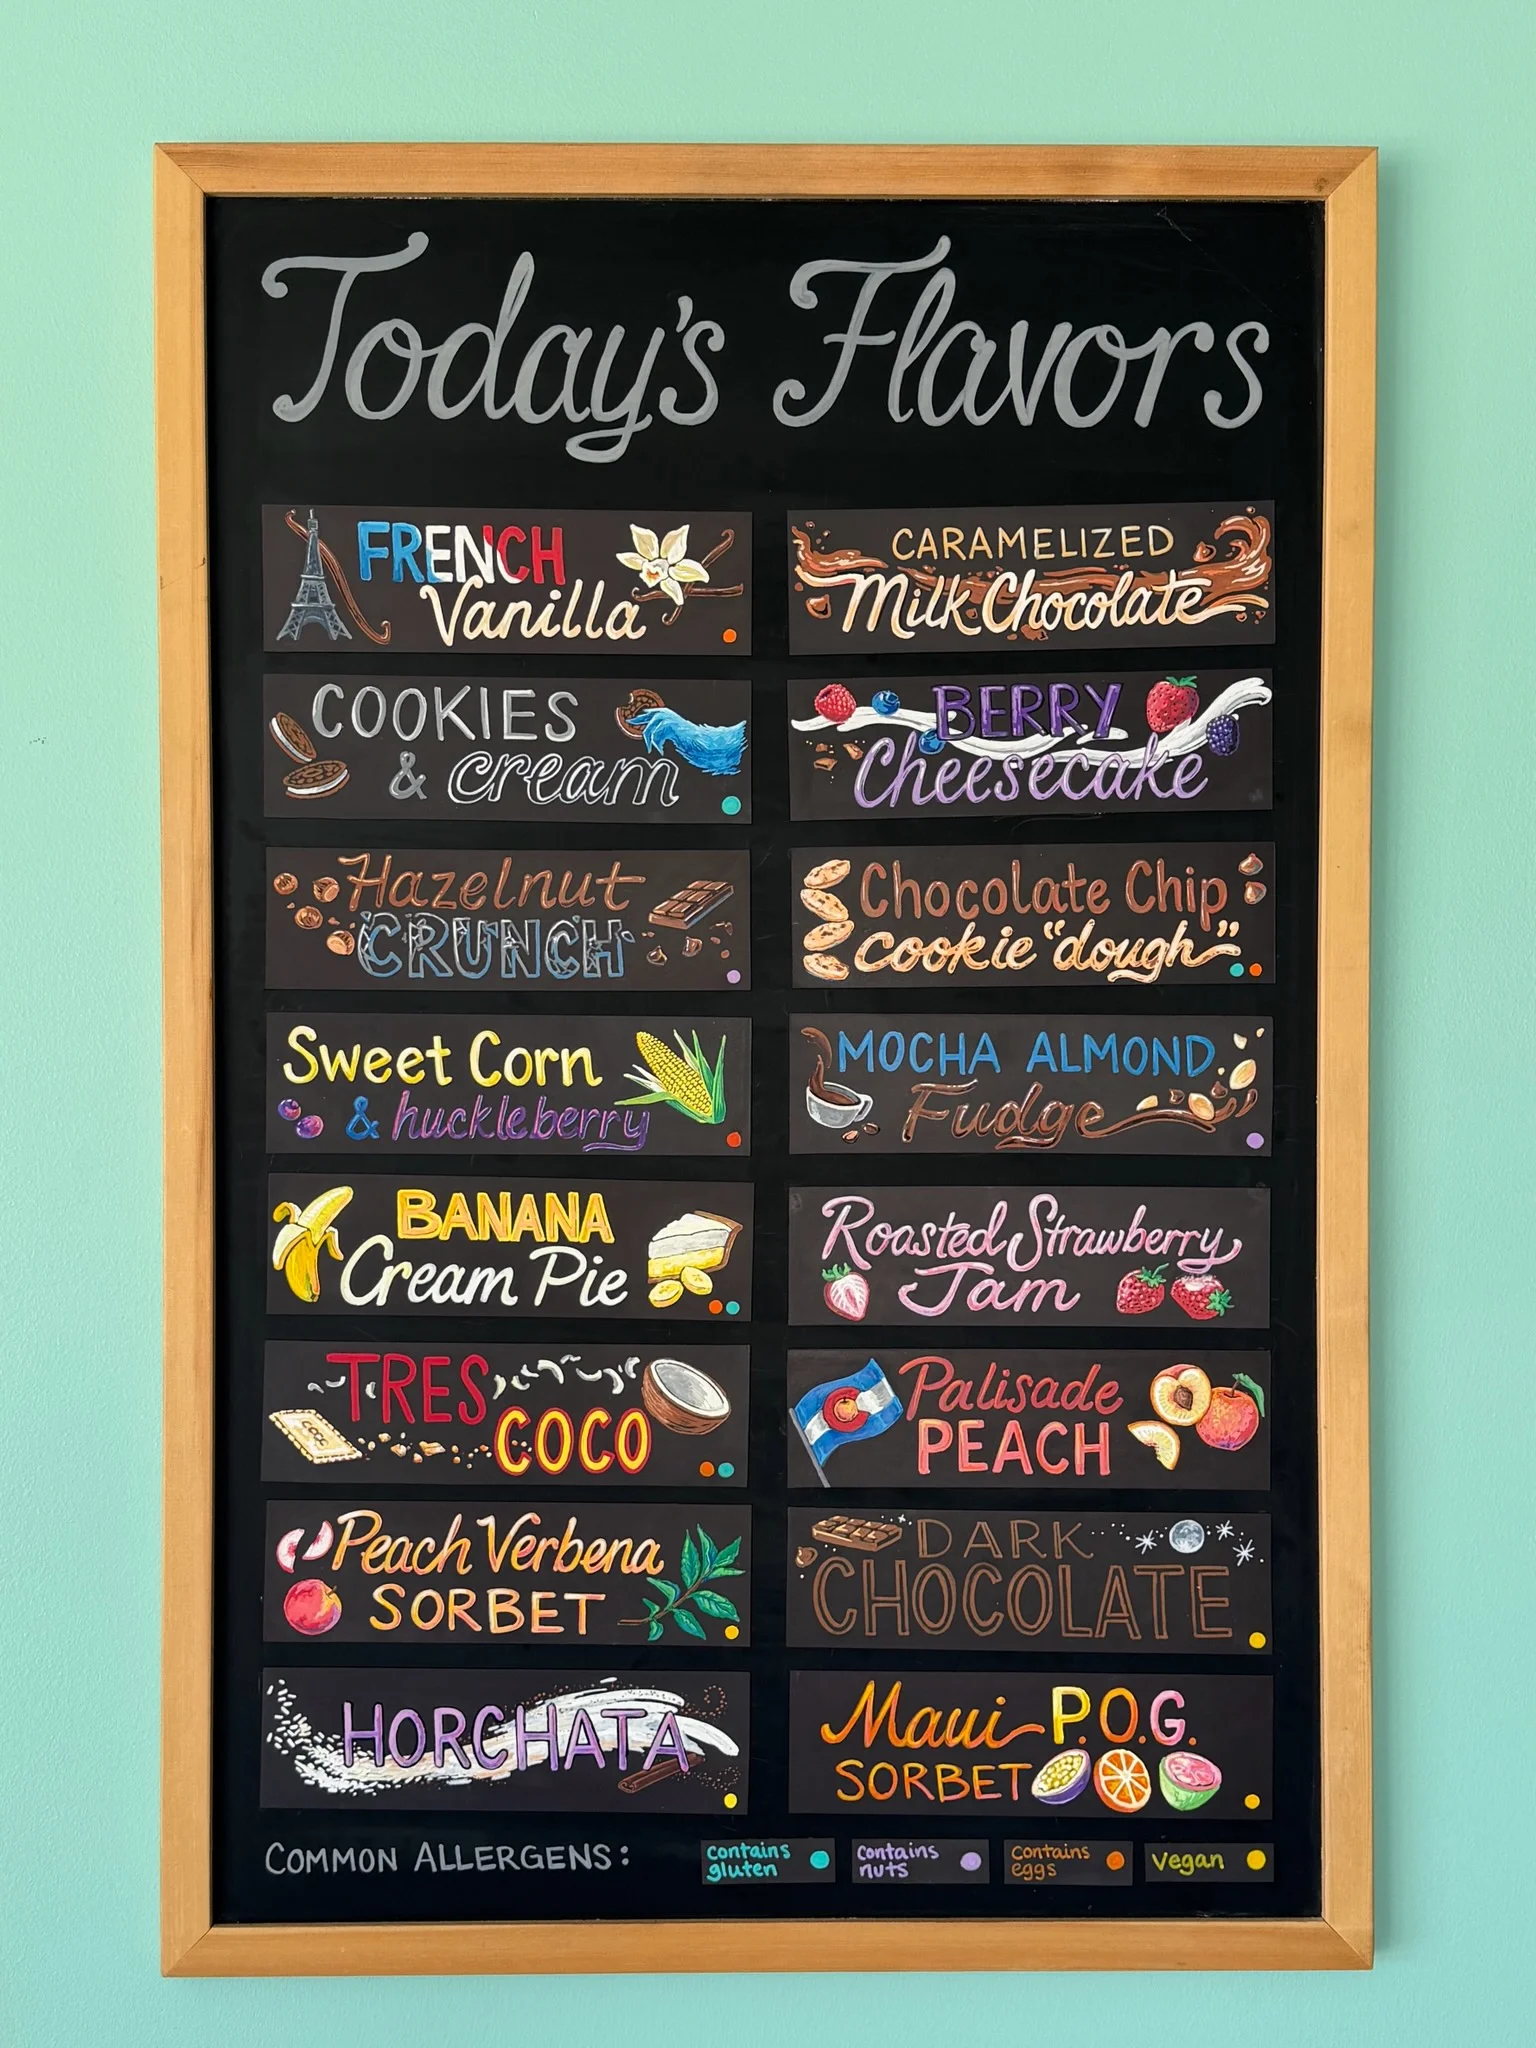 Today's Flavors
FRENCH
Vanilla
CARAMELIZED
Milk Chocolate
COOKIES
& cream
BERRY
Cheesecake
Hazelnut
CRUNCH
Chocolate Chip
cookie "dough"
Sweet Corn
& huckleberry
MOCHA ALMOND
Fudge
BANANA
Cream Pie
Roasted Strawberry
Jam
TRES
COCO
Palisade
PEACH
Peach Verbena
SORBET
DARK
CHOCOLATE
HORCHATA
Maui P.O.G.
SORBET
COMMON ALLERGENS:
contains
gluten
contains
nuts
contains
eggs
Vegan